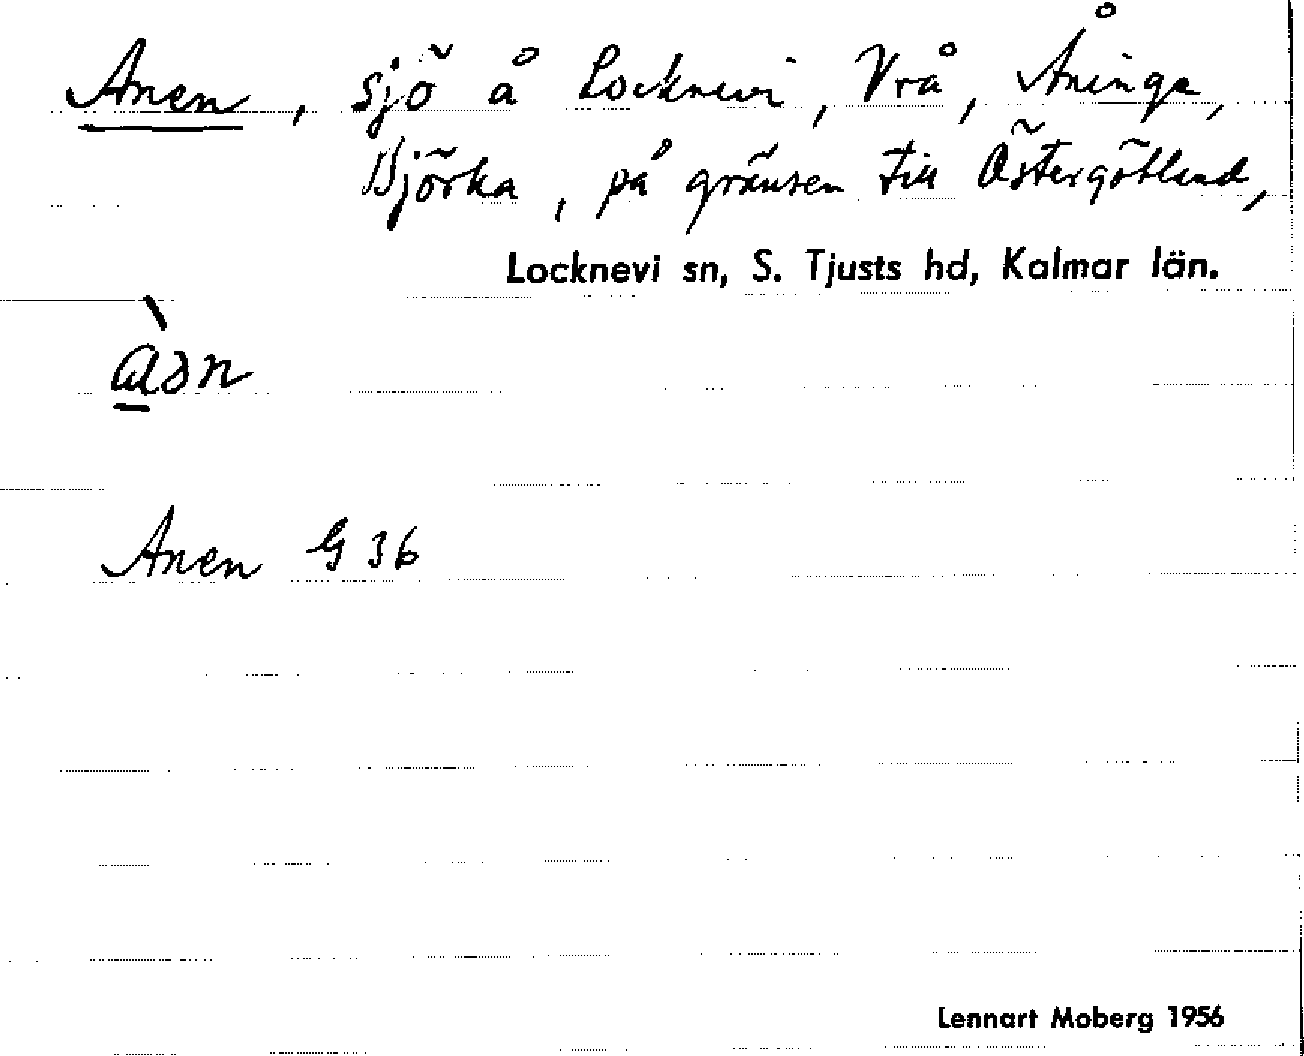 Anen, sjö å Locknevi, Vrå, Åninge,
Björka, på gränsen till Östergötland,
Locknevi sn, S. Tjusts hd, Kalmar län.
Anen G 36
Lennart Moberg 1956